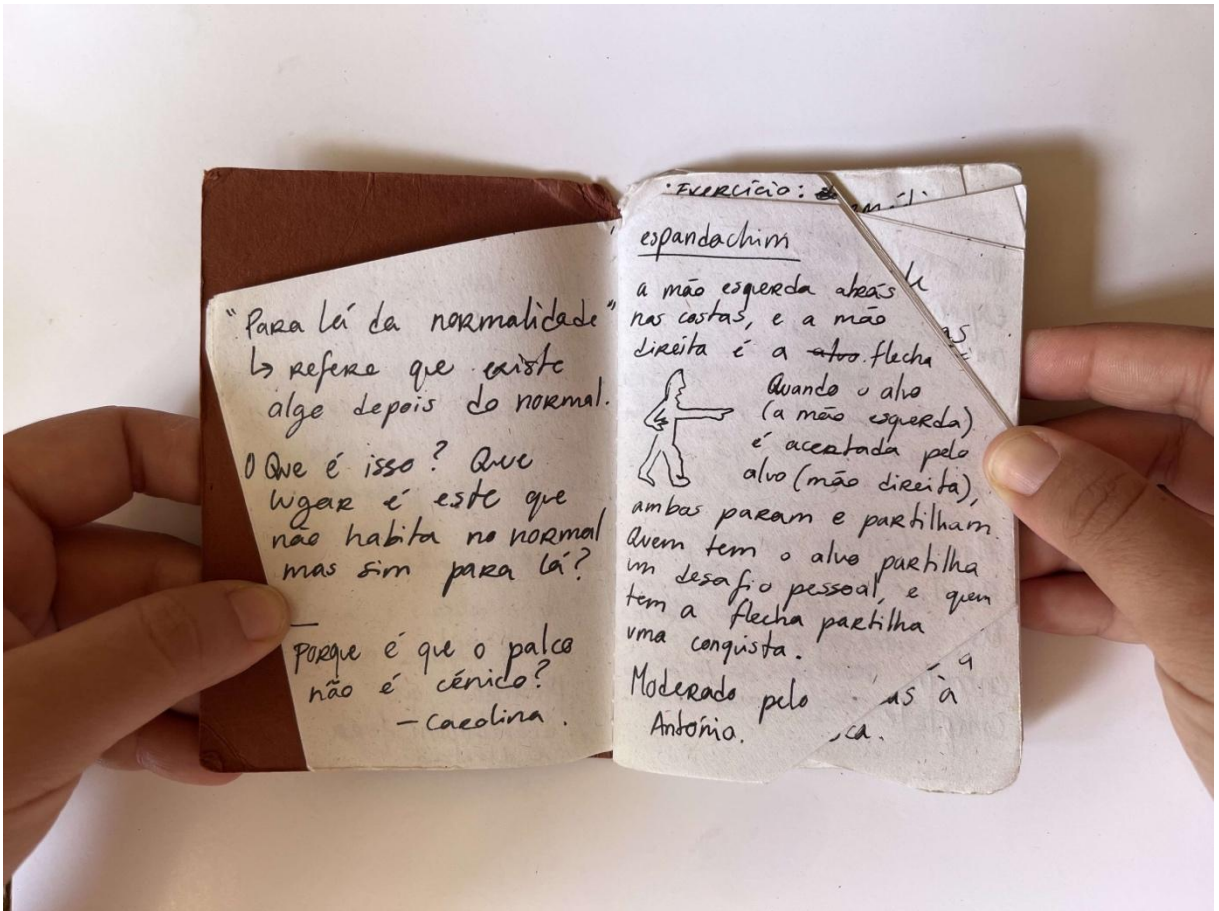 "Para lá da normalidade"
↳ refere que existe
algo depois do normal.
O Que é isso? Que
lugar é este que
não habita no normal
mas sim para lá?
—
Porque é que o palco
não é cénico?
— Carolina.
• Exercício:
espandachim
a mão esquerda atrás
nas costas, e a mão
direita é a alvo flecha
Quando o alvo
(a mão esquerda)
é acertada pelo
alvo (mão direita),
ambas param e partilham.
Quem tem o alvo partilha
um desafio pessoal, e quem
tem a flecha partilha
uma conquista.
Moderado pelo
Antónia.
as à
ca.